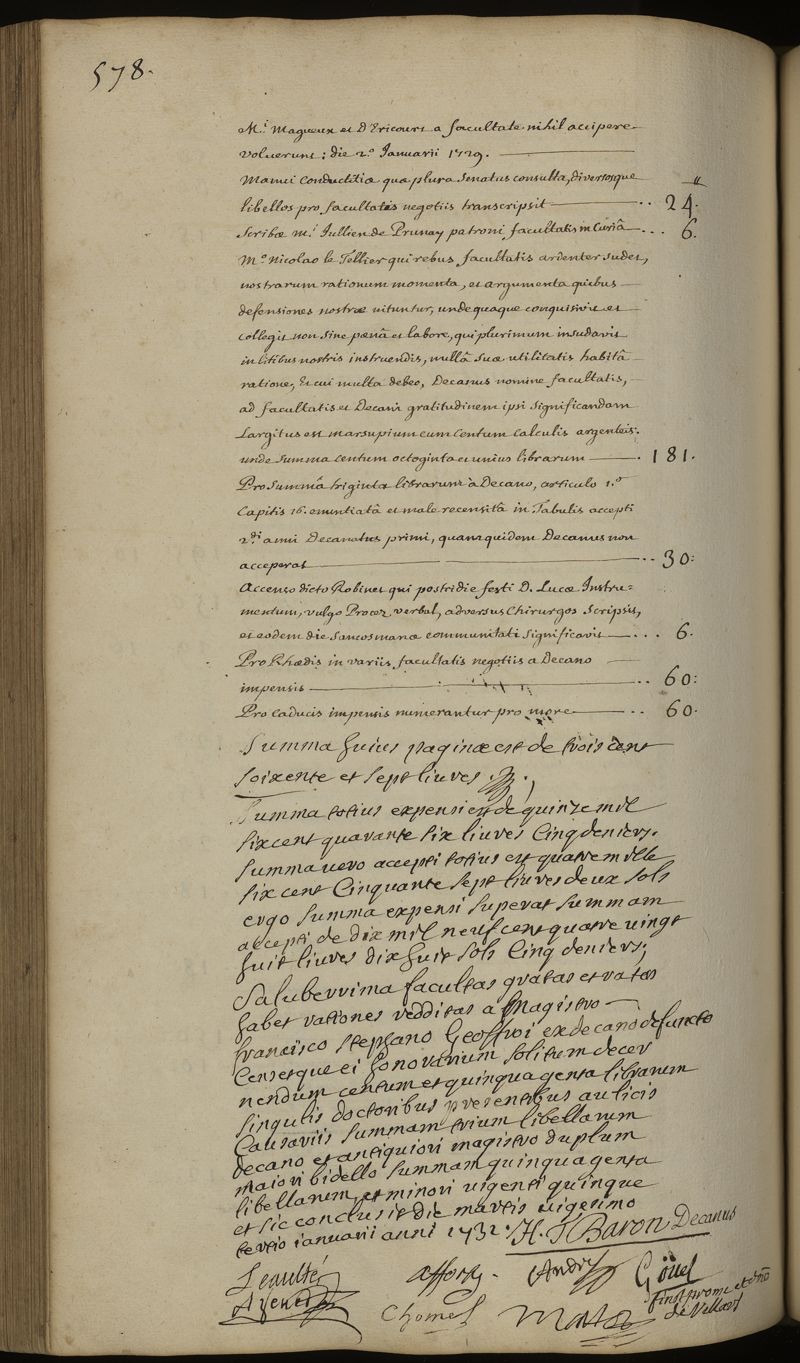 578.
M.i Magueux et D'Ericourt a facultate nihil accipere
voluerunt: die 2.a Januarii 1729.
Manui conductitiæ quæ plura Senatus consulta, diversosque
libellos pro facultatis negotiis transcripsit .. 24.
Scribæ M.i Jullien de Prunay patroni facultatis in Curiâ ... 6.
M.o Nicolao le Tellier qui rebus facultatis ardenter sudet,
nostrarum rationum momenta, et argumenta quibus
defensiones nostræ nituntur, undequaque conquisivit et
collegit non sine pœnâ et labore, qui plurimum insudavit
in litibus nostris instruendis, nullâ suæ utilitatis habitâ
ratione, Et cui multa debeo, Decanus nomine facultatis,
ad facultatis et Decani gratitudinem ipsi significandam
Largitus est marsupium cum centum calculis argenteis.
unde summa centum octoginta et unius librarum . 181.
Pro Summâ triginta librarum à Decano, articulo 1.o
Capitis 16. enuntiatâ et male recensitâ in Tabulis accepti
2.di anni Decanatus primi, quam quidem Decanus non
acceperat .. 30:
Accenso dicto Robinet qui postridie festi D. Lucæ Instru=
mentum, vulgo Procez verbal, adversus Chirurgos Scripsit,
et eodem die Sancosmanæ communitati significavit ... 6.
Pro Rhædis in variis facultatis negotiis a Decano
impensis .. 60:
Pro caducis impensis numerantur pro more .. 60.
Summa huius paginæ est de trois cent
soixente et sept livres.
Summa totius expensi est de quinze mil
six cent quarante six livres Cinq deniers.
Summa vero accepti totius est quatre mille
six cent Cinquante sept livres deux sols
ergo summa expensi superat summam
accepti de dix mil neuf cent quatre vingt
huit livres dix huit sols Cinq deniers,
Saluberrima facultas gratas et ratas
habet rationes redditas a Magistro
francisco stephano Geoffroi exdecano defuncto
Censetque ei honorarium solitum decer
nendum centum et quinquagenta librarum
singulis doctoribus presentibus aulicis
Causariis summam trium libellarum
decano et antiquiori magistro duplum
maiori bidello summam quinquagenta
libellarum, et minori vigenti quinque
et sic conclusit die martis vigesimo
tertio ianuarii anni 1732. H. T. Baron Decanus
Leaulté
afforty. Andry Göuel
Chomel